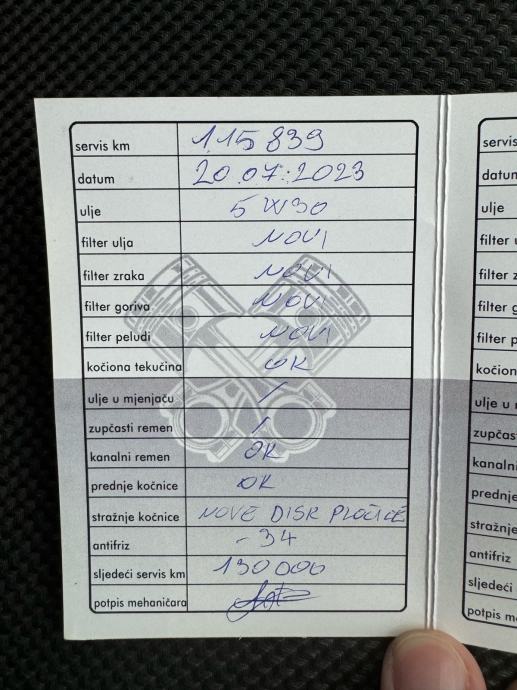 servis km 115 839
datum 20.07.2023
ulje 5W30
filter ulja NOVI
filter zraka NOVI
filter goriva NOVI
filter peludi NOVI
kočiona tekučina OK
ulje u mjenjaču /
zupčasti remen /
kanalni remen OK
prednje kočnice OK
stražnje kočnice NOVE DISK PLOČICE
antifriz -34
sljedeći servis km 130000
potpis mehaničara
servis
datum
ulje
filter u
filter z
filter g
filter p
kočion
ulje u
zupčas
kanalni
prednje
stražnje
antifriz
sljedeći
potpis me